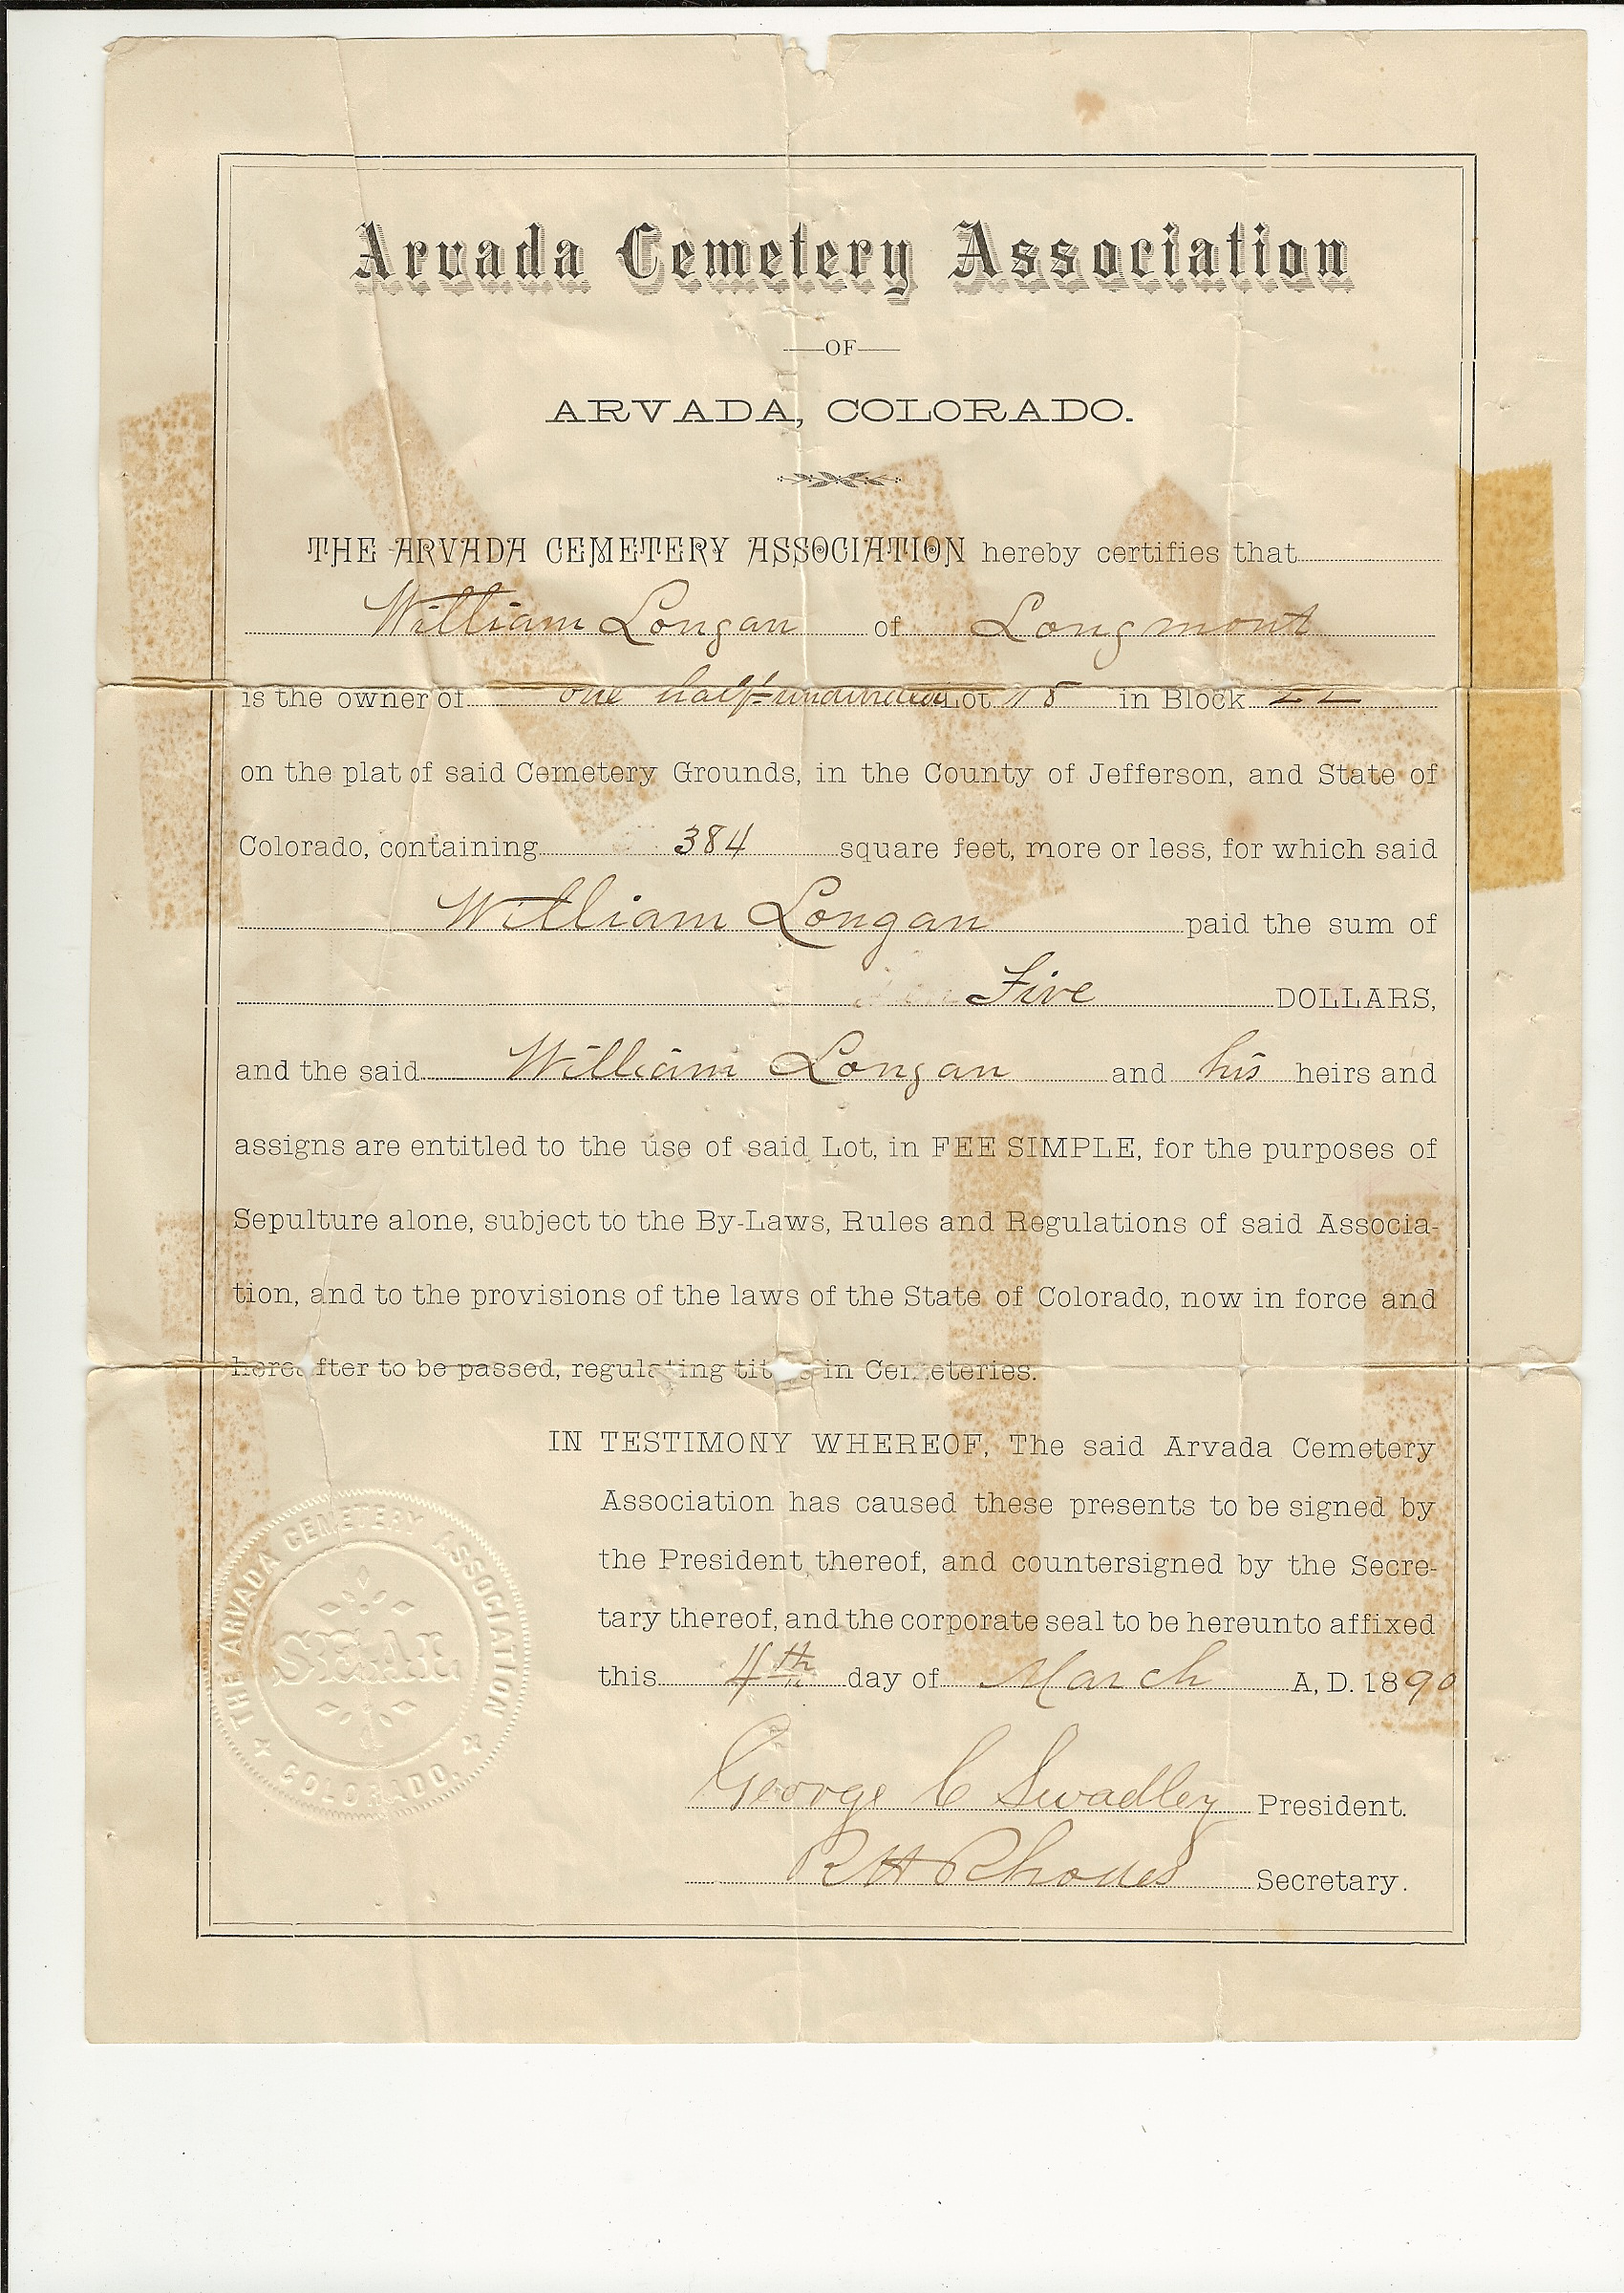 Arvada Cemetery Association
—OF—
ARVADA, COLORADO.
THE ARVADA CEMETERY ASSOCIATION hereby certifies that
William Longan of Longmont
is the owner of one half undivided Lot 18 in Block
on the plat of said Cemetery Grounds, in the County of Jefferson, and State of
Colorado, containing 384 square feet, more or less, for which said
William Longan paid the sum of
Five DOLLARS,
and the said William Longan and his heirs and
assigns are entitled to the use of said Lot, in FEE SIMPLE, for the purposes of
Sepulture alone, subject to the By-Laws, Rules and Regulations of said Associa-
tion, and to the provisions of the laws of the State of Colorado, now in force and
hereafter to be passed, regulating titles in Cemeteries.
IN TESTIMONY WHEREOF, The said Arvada Cemetery
Association has caused these presents to be signed by
the President thereof, and countersigned by the Secre-
tary thereof, and the corporate seal to be hereunto affixed
this 4th day of March A, D. 1890
George C Swadley President.
R H Rhodes Secretary.
THE ARVADA CEMETERY ASSOCIATION
SEAL
COLORADO.